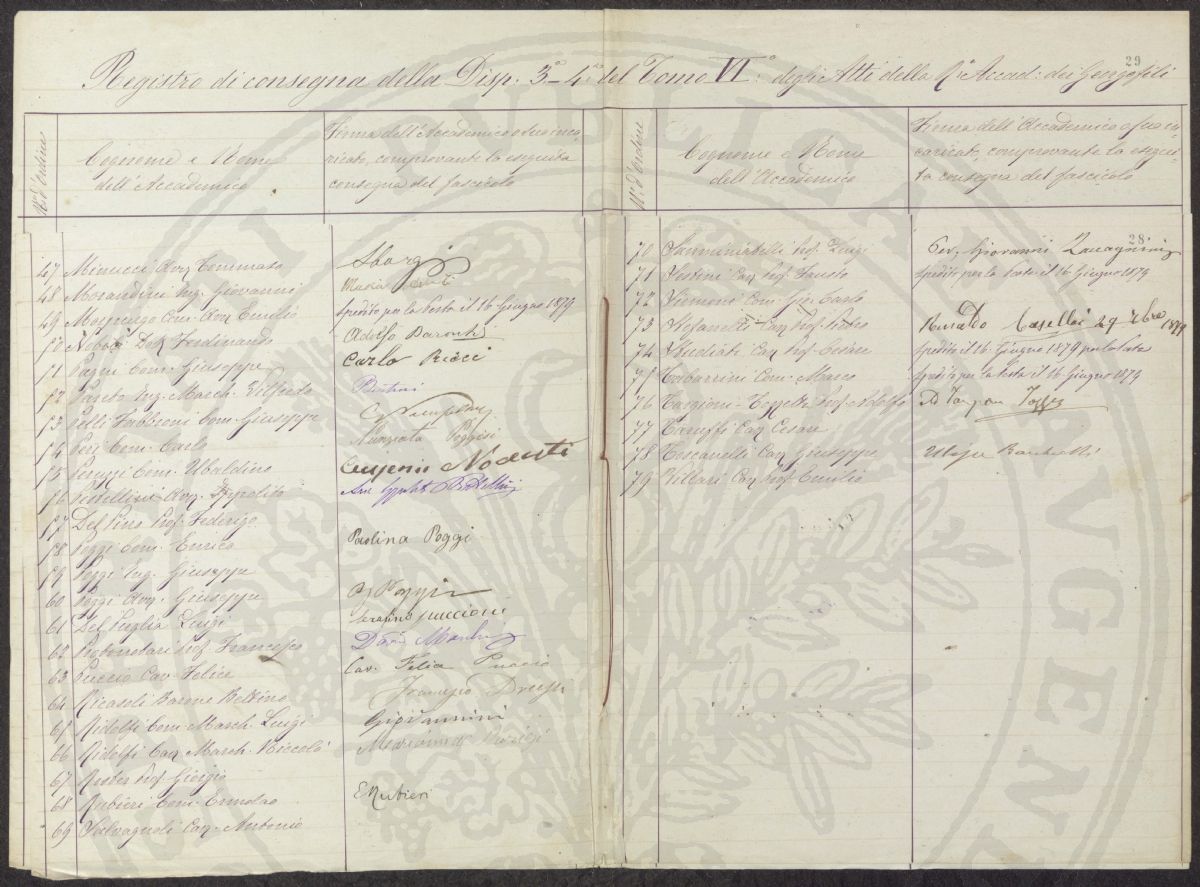 29
Registro di consegna della Disp. 3ª-4ª del Tomo VI° degli Atti della R. Accad. dei Georgofili
N° d'Ordine
Cognome e Nome
dell'Accademico
Firma dell'Accademico o suo inca
ricato, comprovante la eseguita
consegna del fascicolo
47 Minucci Avv. Tommaso
48 Morandini Ing. Giovanni
49 Morpurgo Com. Avv. Emilio spedito per la Posta il 16 Giugno 1879
50 Dott. Ferdinando Adolfo
51 Pagni Com. Giuseppe Carlo Ricci
52 Pareto Ing. March. Vilfredo
53 Pelli Fabbroni Com. Giuseppe
54 Peri Com. Carlo Nunziata
55 Peruzzi Com. Ubaldino Eugenio
56 Pestellini Avv. Ippolito Avv. Ippolito Pestellini
57 Del Pino Prof. Federigo
58 Poggi Com. Enrico Paolina Poggi
59 Poggi Ing. Giuseppe
60 Poggi Avv. Giuseppe G. Poggi
61 Del Puglia Luigi Serafino Puccioni
62 Protonotari Prof. Francesco
63 Puccio Cav. Felice Cav. Felice Puccio
64 Ricasoli Barone Bettino Francesco
65 Ridolfi Com. March. Luigi G Giovannini
66 Ridolfi Cav. March. Niccolò
67 Roster Prof. Giorgio
68 Rubieri Com. Ermolao E Rubieri
69 Salvagnoli Cav. Antonio
N° d'Ordine
Cognome e Nome
dell'Accademico
Firma dell'Accademico o suo in
caricato, comprovante la esegui
ta consegna del fascicolo
28
70 Sanminiatelli Prof. Luigi Per Giovanni
71 Sestini Cav. Prof. Fausto spedito per la Posta il 16 Giugno 1879
72 Siemoni Com. Gio. Carlo
73 Stefanelli Cav. Prof. Pietro Rinaldo Caselli 29 Xbre 1879
74 Studiati Cav. Prof. Cesare spedito il 16 Giugno 1879 per la Posta
75 Tabarrini Com. Marco spedito per la Posta il 16 Giugno 1879
76 Targioni-Tozzetti Prof. Adolfo Ad Targioni Tozzetti
77 Taruffi Cav. Cesare
78 Toscanelli Cav. Giuseppe
79 Villari Cav. Prof. Emilio